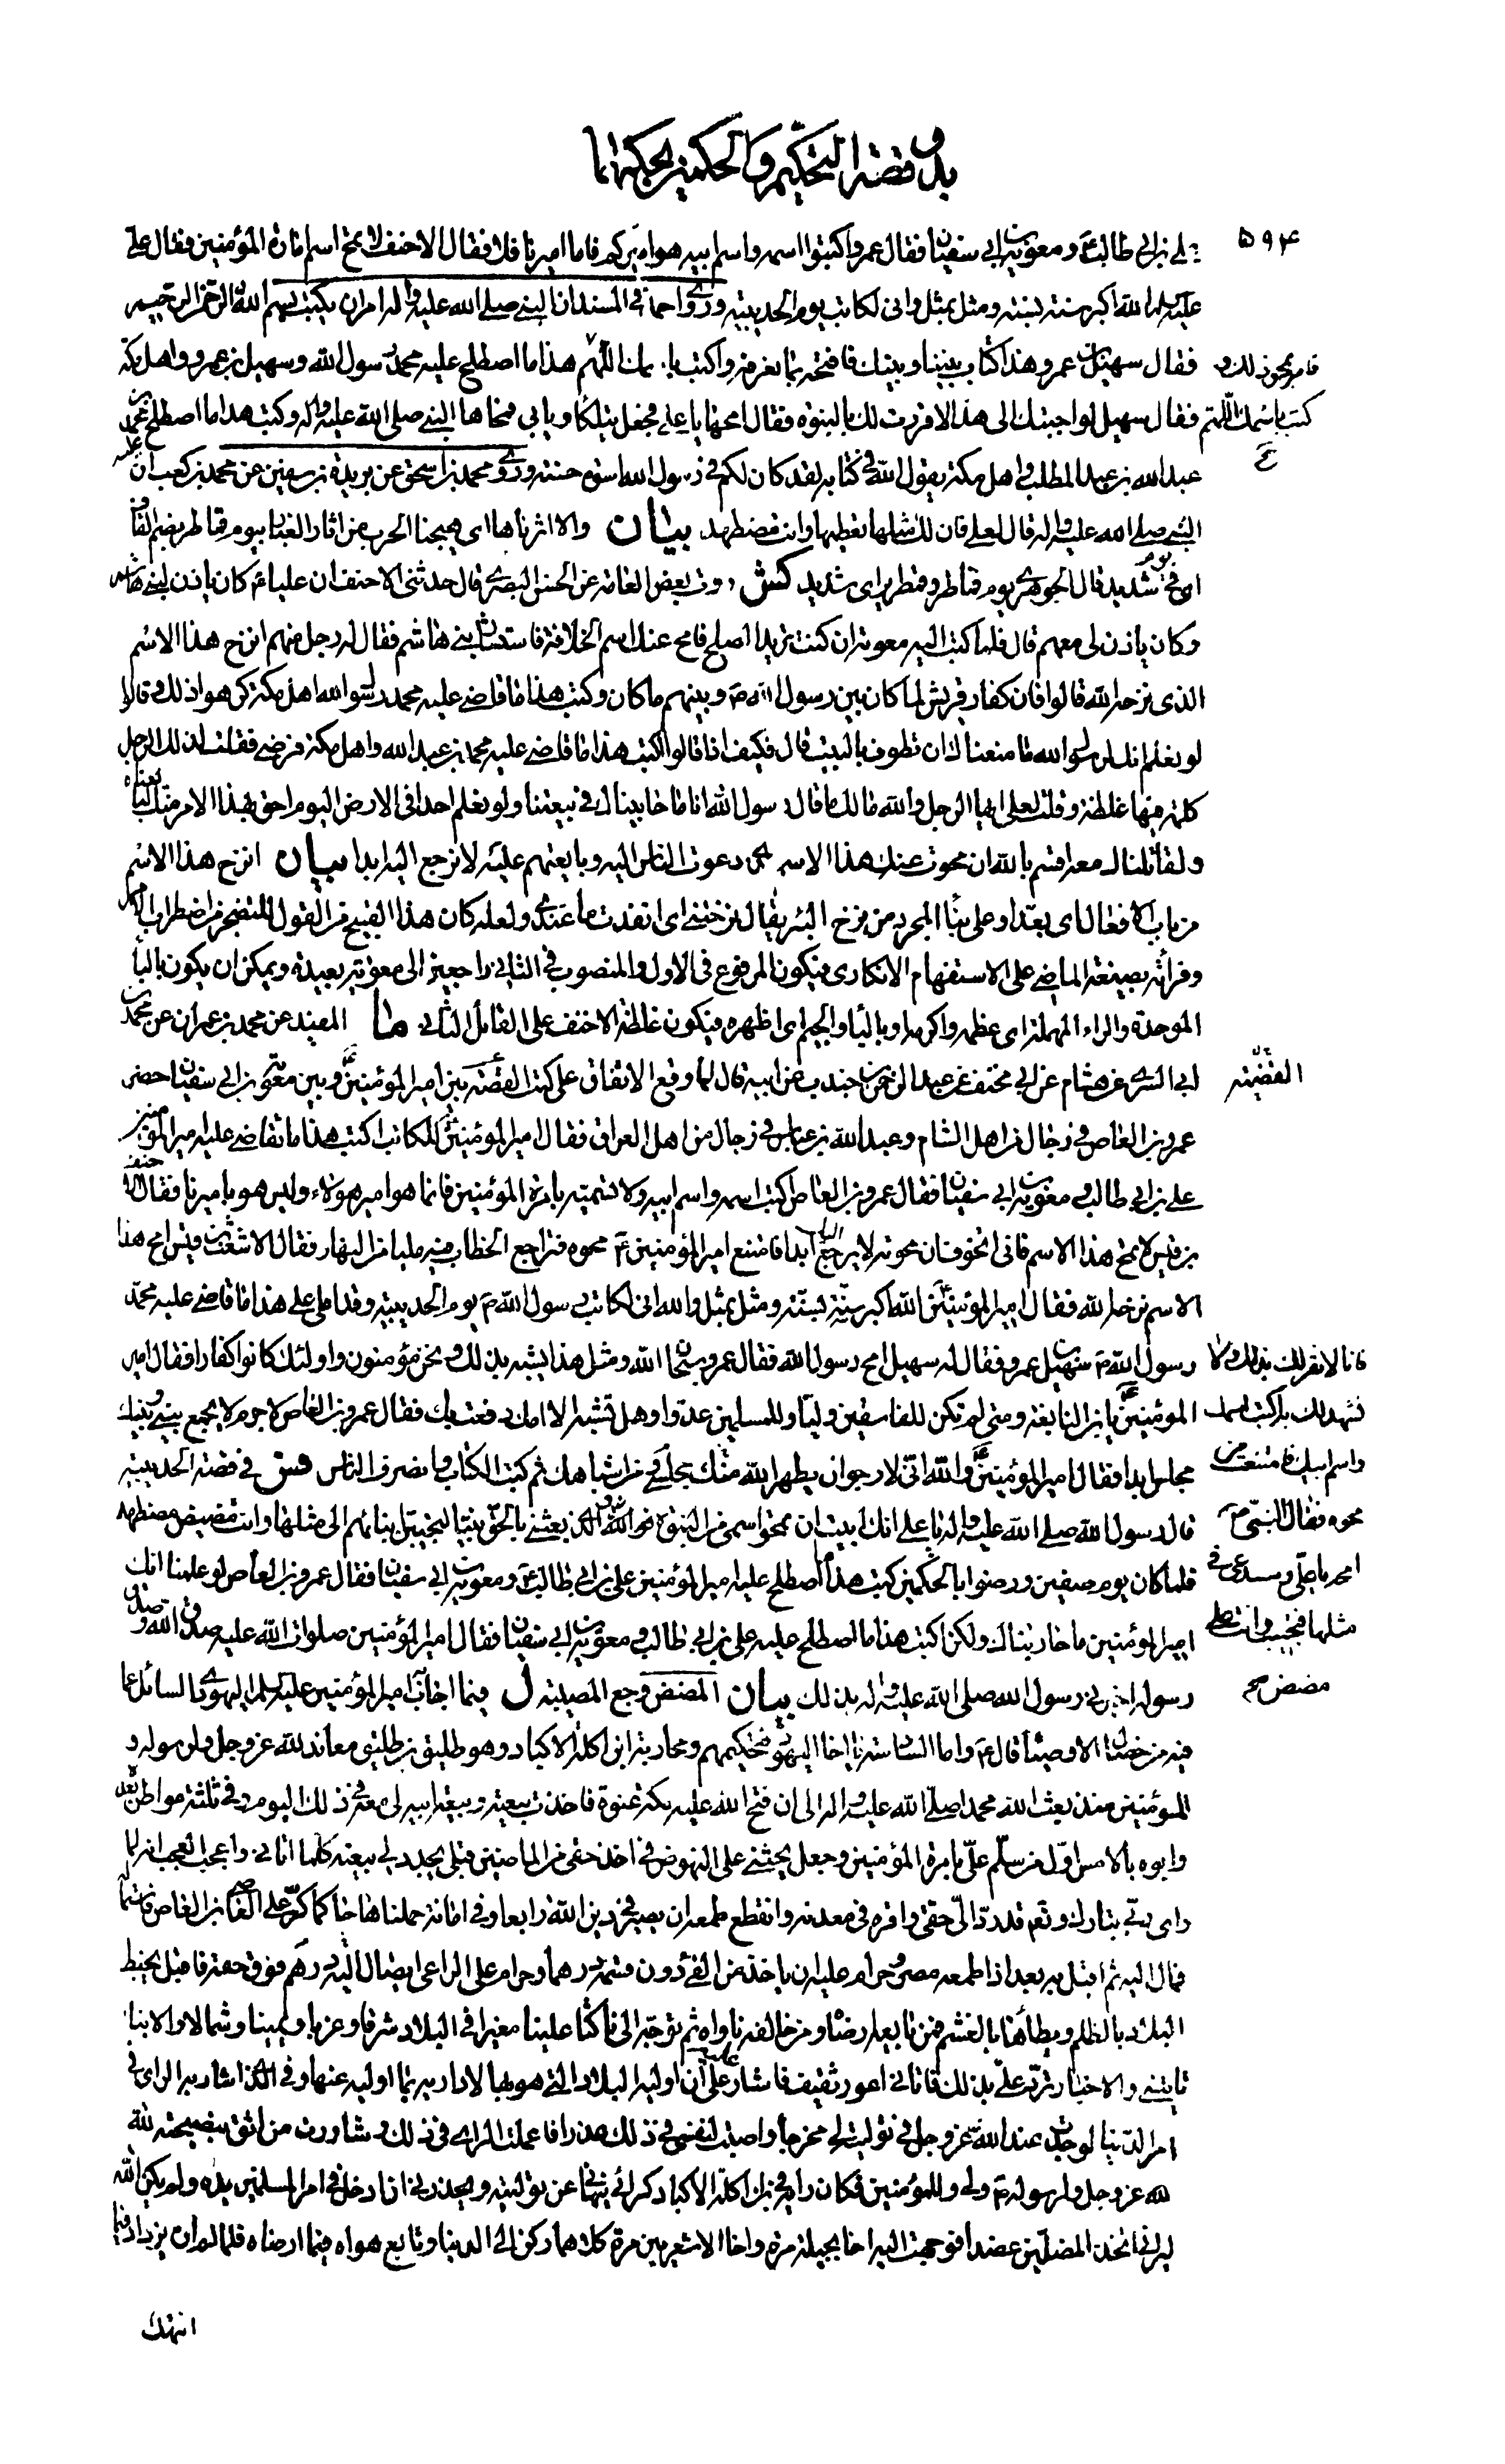 بدو قصة التحكيم والحكمين وحكمهما
۵۹۴
علي بن ابي طالب ع ومعوية بن ابي سفين فقال عمرو اكتبوا اسمه واسم ابيه هو اميركم فاما اميرنا فلا فقال الاحنف لا تمح اسم امارة المؤمنين فقال علي
عليه السلم الله اكبر سنة بسنة ومثل بمثل واني لكاتب يوم الحديبية وروى احمد في المسند ان النبي صلى الله عليه واله امر ان يكتب بسم الله الرحمن الرحيم
فقال سهيل بن عمرو هذا كتاب بيننا وبينك فافتحه بما نعرفه واكتب باسمك اللهم هذا ما اصطلح عليه محمد رسول الله وسهيل بن عمرو واهل مكة
فامر بمحو ذلك و
كتب باسمك اللهم
فقال سهيل لو اجبتك الى هذا لاقررت لك بالنبوة فقال امحها يا علي فجعل يتلكأ ويابى فمحاها النبي صلى الله عليه واله وكتب هذا ما اصطلح محمد بن
ع
عبد الله بن عبد المطلب واهل مكة يقول الله في كتابه لقد كان لكم في رسول الله اسوة حسنة وروى محمد بن اسحق عن بريدة بن سفين عن محمد بن كعب ان
النبي صلى الله عليه واله قال لعلي فان لك مثلها تعطيها وانت مضطهد بيان والا اثرناها اي هيجنا الحرب من اثار الغبار يوم قماطر بضم القاف
اي شديد قال الجوهري يوم قماطر وقمطرير اي شديد كش روت بعض العامة عن الحسن البصري قال حدثني الاحنف ان عليا ع كان ياذن لبني هاشم
وكان ياذن لي معهم قال فلما كتب اليه معوية ان كنت تريد الصلح فامح عنك اسم الخلافة فاستشار بني هاشم فقال له رجل منهم انزح هذا الاسم
الذي نزحه الله قالوا فان كفار قريش لما كان بين رسول الله ص وبينهم ما كان وكتب هذا ما قاضى عليه محمد رسول الله اهل مكة كرهوا ذلك وقالوا
لو نعلم انك رسول الله ما منعناك ان تطوف بالبيت قال فكيف اذا قالوا اكتب هذا ما قاضى عليه محمد بن عبد الله واهل مكة فرضي فقلت لذلك الرجل
كلمة فيها غلظة وقلت لعلي ايها الرجل والله ما لك ما قال رسول الله انا ما حابيناك في بيعتنا ولو نعلم احدا في الارض اليوم احق بهذا الامر منك لبايعناه
ولقاتلناك معه اقسم بالله ان محوت عنك هذا الاسم الذي دعوت الناس اليه وبايعتهم عليه لا ترجع اليه ابدا بيان انزح هذا الاسم
من باب الافعال اي بعّد او على بناء المجرد من نزح البئر يقال نزحته اي انفدت ما عنده ولعله كان هذا القبيح من القول للتضجر من اضطراب الامر
وقرأته بصيغة الماضي على الاستفهام الانكاري فيكون المرفوع في الاول والمنصوب في الثاني راجعين الى معوية بعيدة ويمكن ان يكون بالباء
الموحدة والراء المهملة اي عظمه واكرمه او بالباء والجيم اي اظهره فيكون غلظة الاحنف على القائل الثاني ما المفيد عن محمد بن عمران عن محمد بن
ابي السري عن هشام عن ابي مخنف عن عبد الرحمن بن جندب عن ابيه قال لما وقع الاتفاق على كتب القصة بين امير المؤمنين ع وبين معوية بن ابي سفيان حضر
القضية
عمرو بن العاص في رجال من اهل الشام وعبد الله بن عباس في رجال من اهل العراق فقال امير المؤمنين للكاتب اكتب هذا ما تقاضى عليه امير المؤمنين
علي بن ابي طالب ومعوية بن ابي سفيان فقال عمرو بن العاص اكتب اسمه واسم ابيه ولا تسمه بامرة المؤمنين فانما هو امير هؤلاء وليس هو باميرنا فقال الاحنف
بن قيس لا تمح هذا الاسم فاني اتخوف ان محوته لا يرجع اليك ابدا فامتنع امير المؤمنين ع من محوه فتراجع الخطاب فيه مليا من النهار فقال الاشعث بن قيس امح هذا
الاسم نزحه الله فقال امير المؤمنين ع الله اكبر سنة بسنة ومثل بمثل والله اني لكاتب رسول الله ص يوم الحديبية وقد املى علي هذا ما قاضى عليه محمد
رسول الله ص سهيل بن عمرو فقال له سهيل امح رسول الله فقال عمرو سبحان الله ومثل هذا يشبه بذلك ونحن مؤمنون واولئك كانوا كفارا فقال امير
فانا لا نقر لك بذلك ولا
نشهد لك به اكتب اسمك
المؤمنين ع يا ابن النابغة ومتى لم تكن للفاسقين وليا وللمسلمين عدوا وهل تشبه الا امك دفعت بك فقال عمرو بن العاص لا جرم لا يجمع بيني وبينك
واسم ابيك فامتنعت من
مجلس ابدا فقال امير المؤمنين ع والله اني لارجو ان يطهر الله منك مجلسي ومن اشباهك ثم كتب الكتاب وانصرف الناس فس في قصة الحديبية
محوه فقال النبي ص
قال رسول الله صلى الله عليه واله يا علي انك ابيت ان تمحو اسمي من النبوة فوالله الذي بعثني بالحق نبيا لتجيبن ابناءهم الى مثلها وانت مضيض مضطهد
امحه يا علي وستدعى في
فلما كان يوم صفين ورضوا بالحكمين كتب هذا ما اصطلح عليه امير المؤمنين علي بن ابي طالب ع ومعوية بن ابي سفيان فقال عمرو بن العاص لو علمنا انك
مثلها فتجيب وانت على
امير المؤمنين ما حاربناك ولكن اكتب هذا ما اصطلح عليه علي بن ابي طالب ومعوية بن ابي سفيان فقال امير المؤمنين صلوات الله عليه صدق الله وصدق
مضض صح
رسوله اخبرني رسول الله صلى الله عليه واله بذلك بيان المضض وجع المصيبة ل فيما اجاب امير المؤمنين عليه السلم اليهودي السائل عما
فيه من خصال الاوصياء قال ع واما السادسة يا اخا اليهود فتحكيمهم ومحاربة ابن اكلة الاكباد وهو طليق بن طليق معاند لله عز وجل ولرسوله و
للمؤمنين منذ بعث الله محمدا صلى الله عليه واله الى ان فتح الله عليه مكة عنوة فاخذت بيعته وبيعة ابيه لي معه في ذلك اليوم وفي ثلثة مواطن بعد
وابوه بالامس اول من سلم علي بامرة المؤمنين وجعل يحثني على النهوض في اخذ حقي من الماضين قبلي يجدد لي بيعته كلما اتاني واعجب العجب انه لما
راى ربي تبارك وتع قد رد الي حقي واقره في معدنه وانقطع طمعه ان يصير في دين الله رابعا وفي امانة حملناها حاكما كر على العاص بن العاص فاستماله
فمال اليه ثم اقبل به بعد اذ اطمعه مصر وحرام عليه ان ياخذ من الفئ دون قسمه درهما وحرام على الراعي ايصال اليه درهم فوق حقه فاقبل يخبط
البلاد بالظلم ويطأها بالغشم فمن بايعه ارضاه ومن خالفه ناواه ثم توجه الي ناكثا علينا مغيرا في البلاد شرقا وغربا ويمينا وشمالا والانباء
تاتيني والاخبار ترد علي بذلك فاتاني اعور ثقيف فاشار علي ان اوليه البلاد التي هو بها لاداريه بما اوليه عنها وفي الذي اشار به الراي في
امر الدنيا لو وجدت عند الله عز وجل في توليته لي مخرجا واصبت لنفسي في ذلك عذرا فاعملت الراي في ذلك وشاورت من اثق بنصيحته لله
لله عز وجل ولرسوله ص ولي وللمؤمنين فكان رايه في ابن اكلة الاكباد كرائي ينهاني عن توليته ويحذرني ان ادخل في امر المسلمين يده ولم يكن الله
ليراني اتخذ المضلين عضدا فوجهت اليه اخا بجيلة مرة واخا الاشعريين مرة كلاهما ركن الى الدنيا وتابع هواه فيما ارضاه فلما لم اره يزداد فيما
انتهك